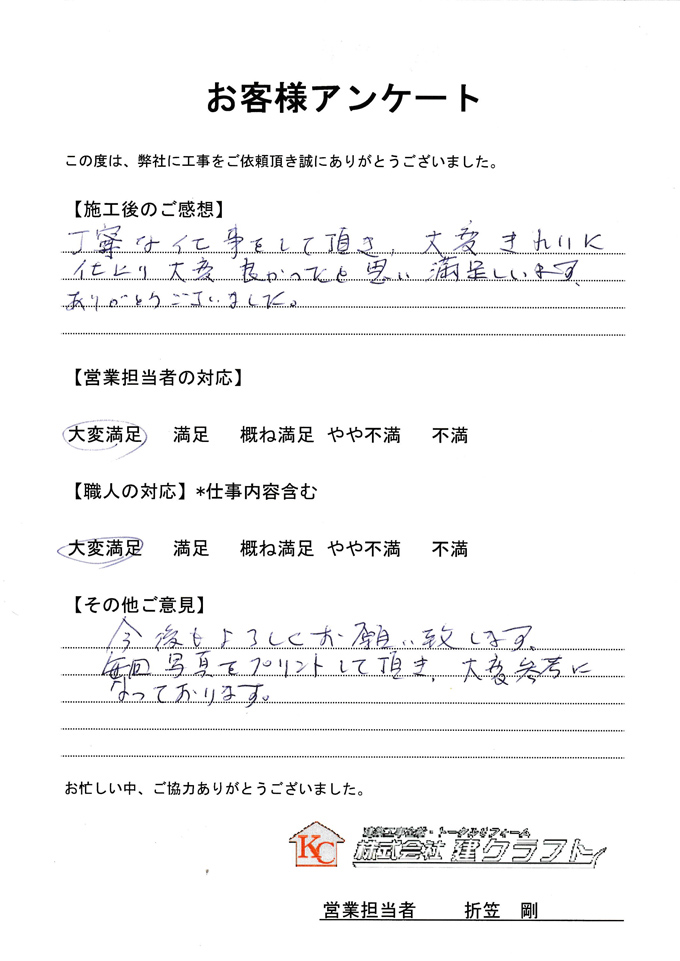 お客様アンケート
この度は、弊社に工事をご依頼頂き誠にありがとうございました。
【施工後のご感想】
丁寧な仕事をして頂き、大変きれいに
仕上り大変良かったと思い満足しています。
ありがとうございました。
【営業担当者の対応】
大変満足 満足 概ね満足 やや不満 不満
【職人の対応】*仕事内容含む
大変満足 満足 概ね満足 やや不満 不満
【その他ご意見】
今後もよろしくお願い致します。
毎回写真をプリントして頂き、大変参考に
なっております。
お忙しい中、ご協力ありがとうございました。
KC
・トータルリフォーム
株式会社 建クラフト
営業担当者 折笠 剛